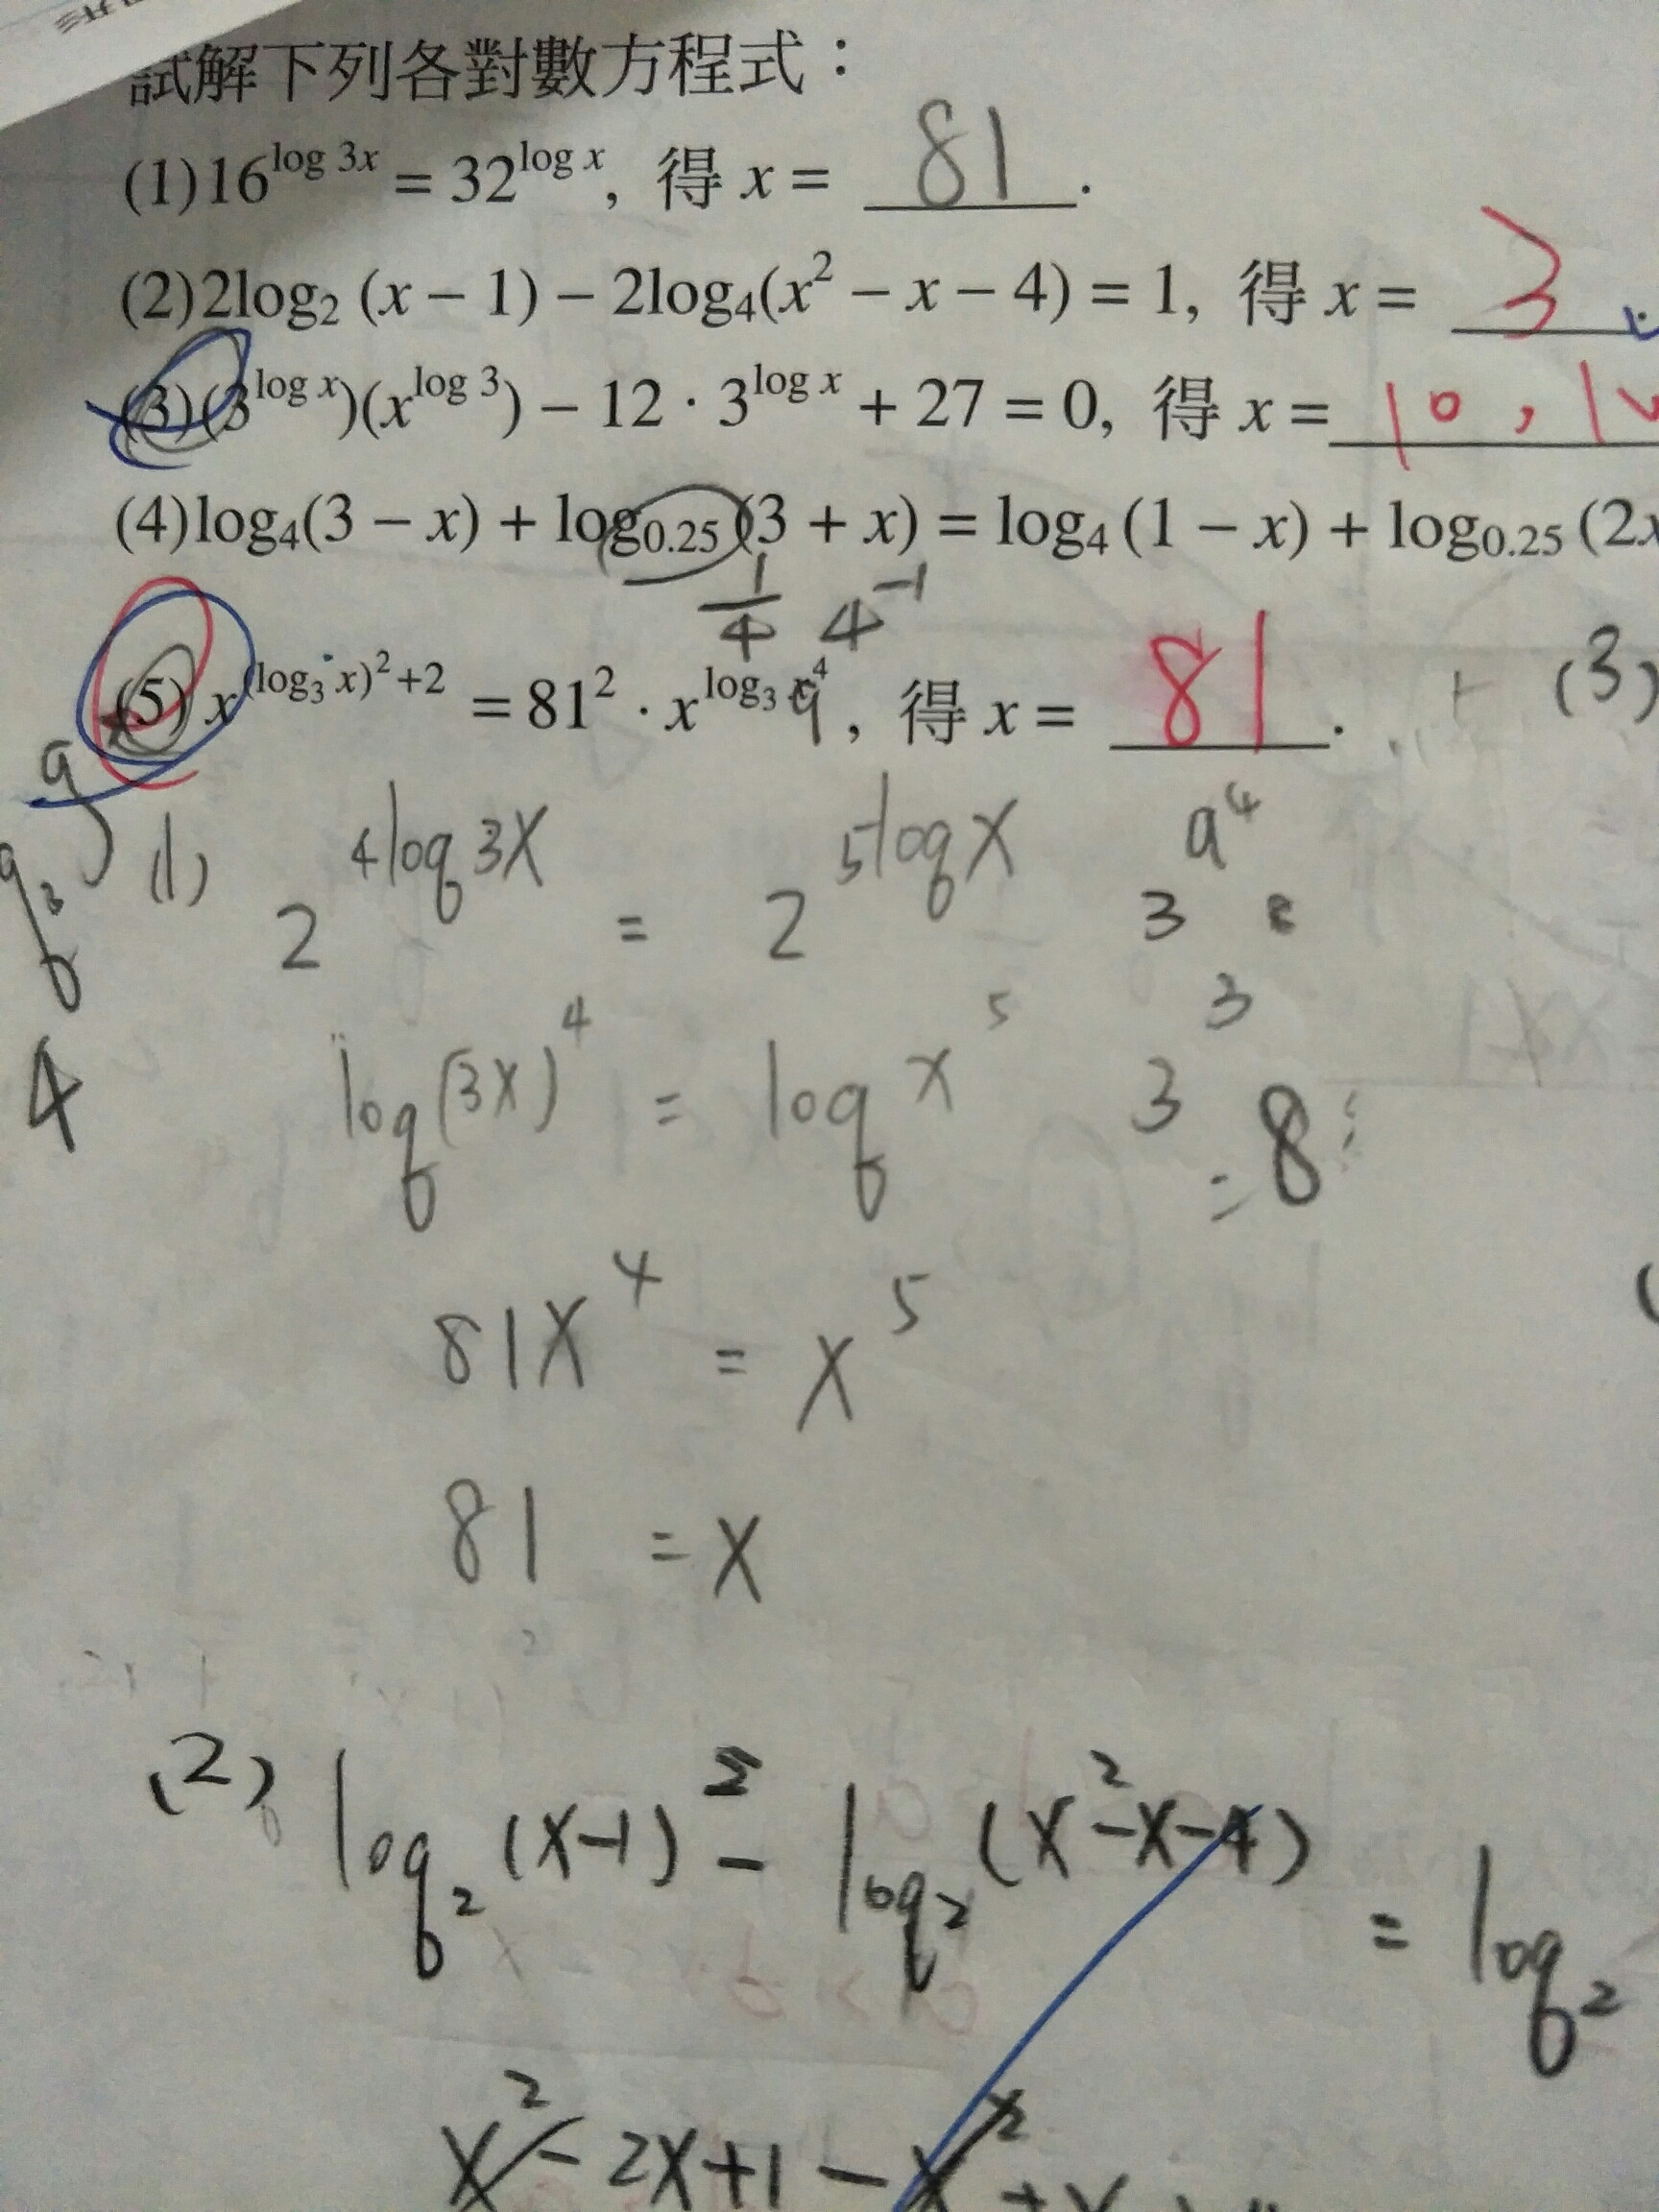 試解下列各對數方程式：
(1)16^{log 3x} = 32^{log x}, 得 x = 81.
(2)2log₂ (x − 1) − 2log₄(x² − x − 4) = 1, 得 x = 3
(3)(3^{log x})(x^{log 3}) − 12 · 3^{log x} + 27 = 0, 得 x = 10, 1
(4)log₄(3 − x) + log₀.₂₅ (3 + x) = log₄ (1 − x) + log₀.₂₅ (2x
1/4 4⁻¹
(5) x^{(log₃ x)²+2} = 81² · x^{log₃ x⁴}, 得 x = 81.
(3)
(1) 2^{4log3X} = 2^{5logX}
log(3X)⁴ = log X⁵
81X⁴ = X⁵
81 = X
a⁴
3
3³
= 8
4
(2) log₂ (X−1)² − log₂ (X²−X−4) = log₂
X² − 2X+1 − X² + X